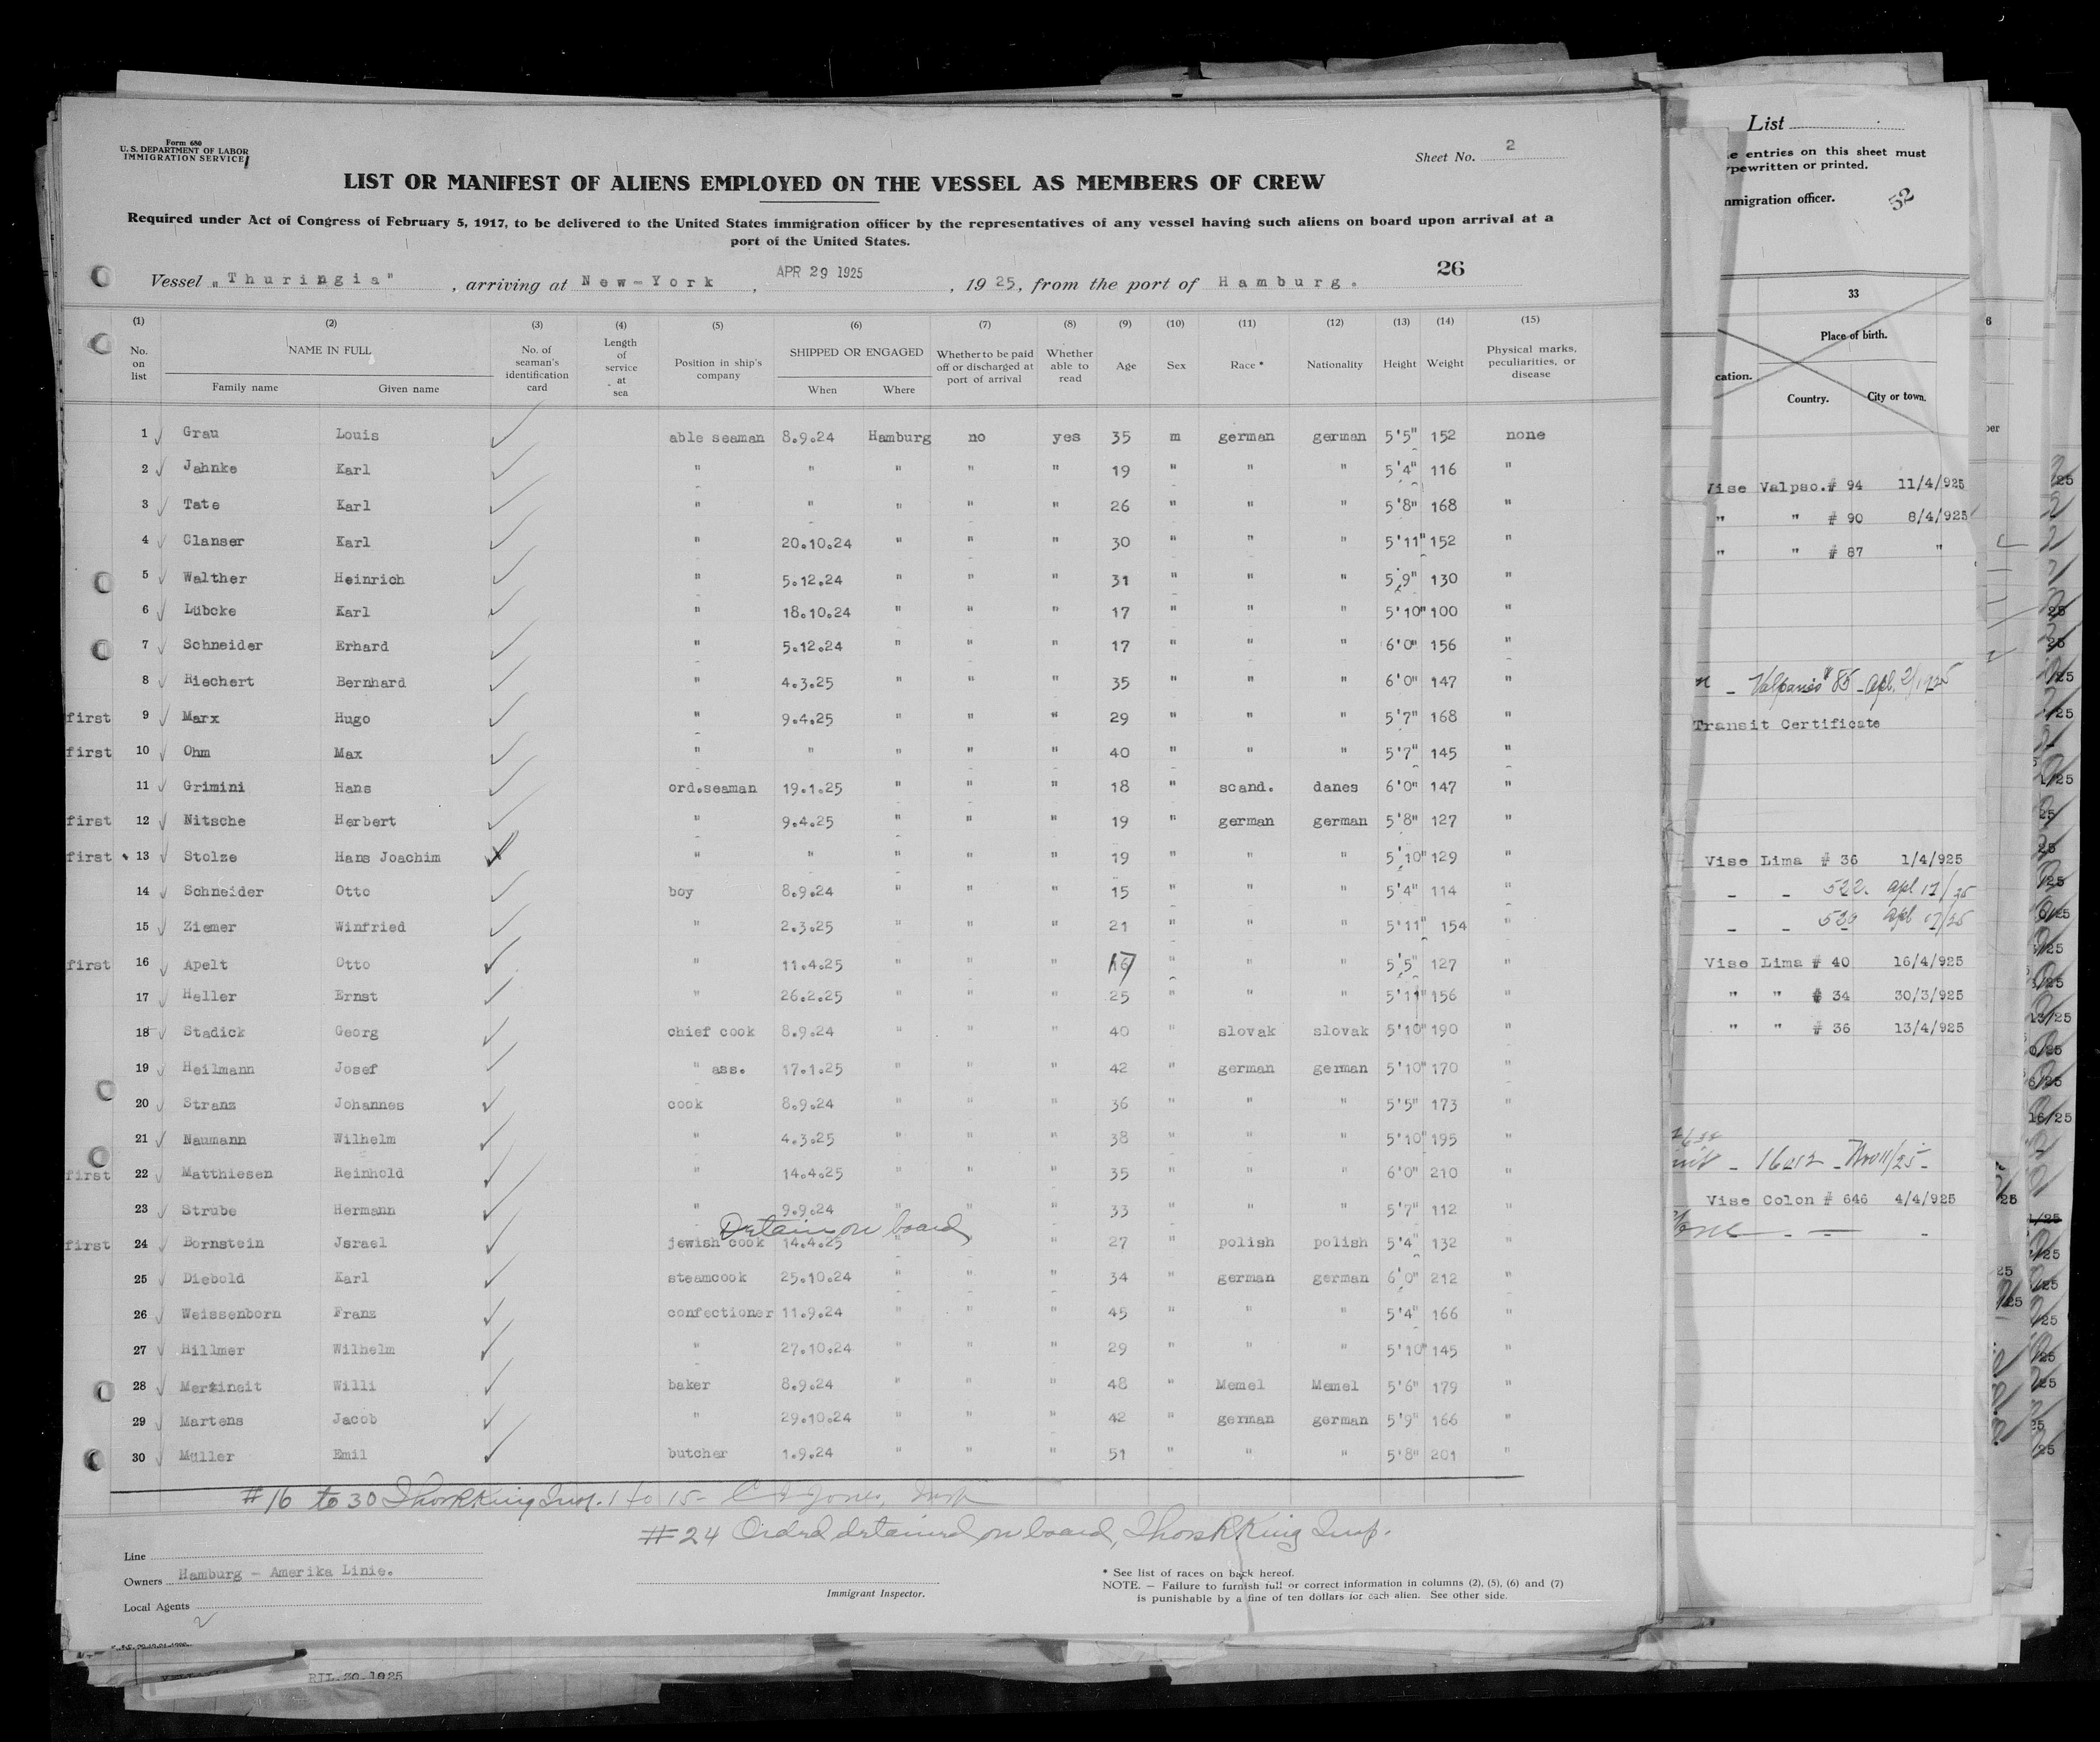 Form 680
U. S. DEPARTMENT OF LABOR
IMMIGRATION SERVICE
Sheet No. 2
LIST OR MANIFEST OF ALIENS EMPLOYED ON THE VESSEL AS MEMBERS OF CREW
Required under Act of Congress of February 5, 1917, to be delivered to the United States immigration officer by the representatives of any vessel having such aliens on board upon arrival at a
port of the United States.
26
Vessel „Thuringia" , arriving at New-York , APR 29 1925 , 1925, from the port of Hamburg.
(1) (2) (3) (4) (5) (6) (7) (8) (9) (10) (11) (12) (13) (14) (15)
No. on list NAME IN FULL Family name Given name No. of seaman's identification card Length of service at sea Position in ship's company SHIPPED OR ENGAGED When Where Whether to be paid off or discharged at port of arrival Whether able to read Age Sex Race * Nationality Height Weight Physical marks, peculiarities, or disease
1 Grau Louis able seaman 8.9.24 Hamburg no yes 35 m german german 5'5" 152 none
2 Jahnke Karl " " " " " 19 " " " 5'4" 116 "
3 Tate Karl " " " " " 26 " " " 5'8" 168 "
4 Clanser Karl " 20.10.24 " " " 30 " " " 5'11" 152 "
5 Walther Heinrich " 5.12.24 " " " 31 " " " 5'9" 130 "
6 Lübcke Karl " 18.10.24 " " " 17 " " " 5'10" 100 "
7 Schneider Erhard " 5.12.24 " " " 17 " " " 6'0" 156 "
8 Riechert Bernhard " 4.3.25 " " " 35 " " " 6'0" 147 "
first 9 Marx Hugo " 9.4.25 " " " 29 " " " 5'7" 168 "
first 10 Ohm Max " " " " " 40 " " " 5'7" 145 "
11 Grimini Hans ord.seaman 19.1.25 " " " 18 " scand. danes 6'0" 147 "
first 12 Nitsche Herbert " 9.4.25 " " " 19 " german german 5'8" 127 "
first 13 Stolze Hans Joachim " " " " " 19 " " " 5'10" 129 "
14 Schneider Otto boy 8.9.24 " " " 15 " " " 5'4" 114 "
15 Ziemer Winfried " 2.3.25 " " " 21 " " " 5'11" 154 "
first 16 Apelt Otto " 11.4.25 " " " 17 " " " 5'5" 127 "
17 Heller Ernst " 26.2.25 " " " 25 " " " 5'11" 156 "
18 Stadick Georg chief cook 8.9.24 " " " 40 " slovak slovak 5'10" 190 "
19 Heilmann Josef " ass. 17.1.25 " " " 42 " german german 5'10" 170 "
20 Stranz Johannes cook 8.9.24 " " " 36 " " " 5'5" 173 "
21 Naumann Wilhelm " 4.3.25 " " " 38 " " " 5'10" 195 "
first 22 Matthiesen Reinhold " 14.4.25 " " " 35 " " " 6'0" 210 "
23 Strube Hermann " 9.9.24 " " " 33 " " " 5'7" 112 "
Detain on board
first 24 Bornstein Jsrael jewish cook 14.4.25 " " " 27 " polish polish 5'4" 132 "
25 Diebold Karl steamcook 25.10.24 " " " 34 " german german 6'0" 212 "
26 Weissenborn Franz confectioner 11.9.24 " " " 45 " " " 5'4" 166 "
27 Hillmer Wilhelm " 27.10.24 " " " 29 " " " 5'10" 145 "
28 Mertineit Willi baker 8.9.24 " " " 48 " Memel Memel 5'6" 179 "
29 Martens Jacob " 29.10.24 " " " 42 " german german 5'9" 166 "
30 Müller Emil butcher 1.9.24 " " " 51 " " " 5'8" 201 "
#16 to 30 Thos R King Insp. 1 to 15- C Jones, Insp
#24 Ordrd detained on board, Thos R King Insp.
Line
Owners Hamburg - Amerika Linie.
Local Agents
Immigrant Inspector.
* See list of races on back hereof.
NOTE. — Failure to furnish full or correct information in columns (2), (5), (6) and (7)
is punishable by a fine of ten dollars for each alien. See other side.
RIL.30.1925
List
entries on this sheet must
typewritten or printed.
mmigration officer.
52
33
Place of birth.
cation.
Country. City or town.
Vise Valpso.# 94 11/4/925
" " # 90 8/4/925
" " # 87 "
Transit Certificate
Vise Lima # 36 1/4/925
522. apl 17/25
520 apl 17/25
Vise Lima # 40 16/4/925
" " # 34 30/3/925
" " # 36 13/4/925
Vise Colon # 646 4/4/925